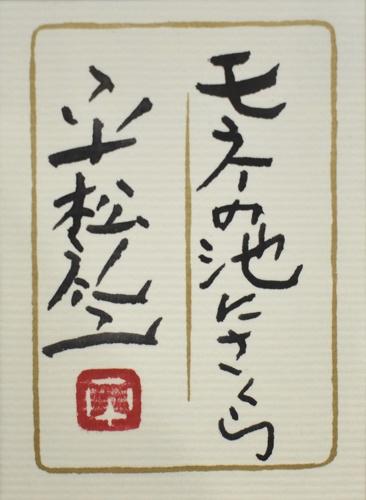 モネの池にさくら
平松礼二